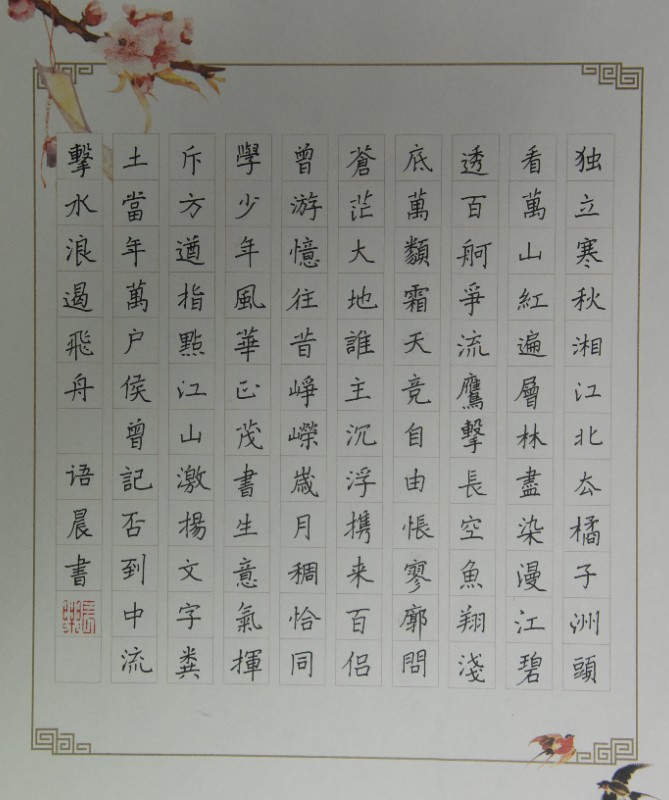 独立寒秋湘江北厺橘子洲頭
看萬山紅遍層林盡染漫江碧
透百舸爭流鷹擊長空魚翔淺
底萬類霜天竞自由悵廖廓問
蒼茫大地誰主沉浮携来百侣
曾游憶往昔崢嶸嵗月稠恰同
學少年風華正茂書生意氣揮
斥方遒指點江山激揚文字糞
土當年萬户侯曾記否到中流
擊水浪遏飛舟 语晨書